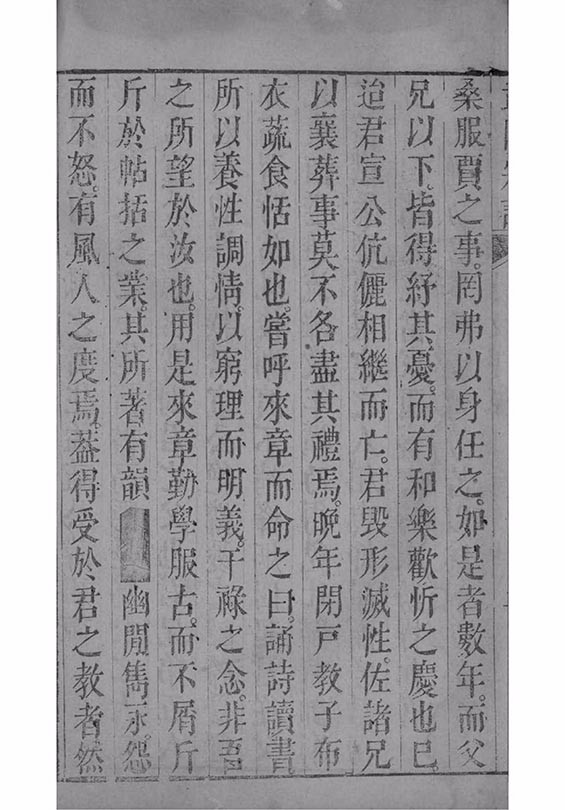 桑服賈之事。罔弗以身任之。如是者數年。而父
兄以下。皆得紓其憂。而有和樂歡忻之慶也。已
迨君宣公伉儷相繼而亡。君毀形滅性。佐諸兄
以襄葬事。莫不各盡其禮焉。晚年閉戶教子。布
衣蔬食恬如也。嘗呼來章而命之曰。誦詩讀書。
所以養性調情。以窮理而明義。干祿之念。非吾
之所望於汝也。用是來章勤學服古。而不屑斤
斤於帖括之業。其所著有韻 幽閒雋永。怨
而不怒。有風人之度焉。葢得受於君之教者然